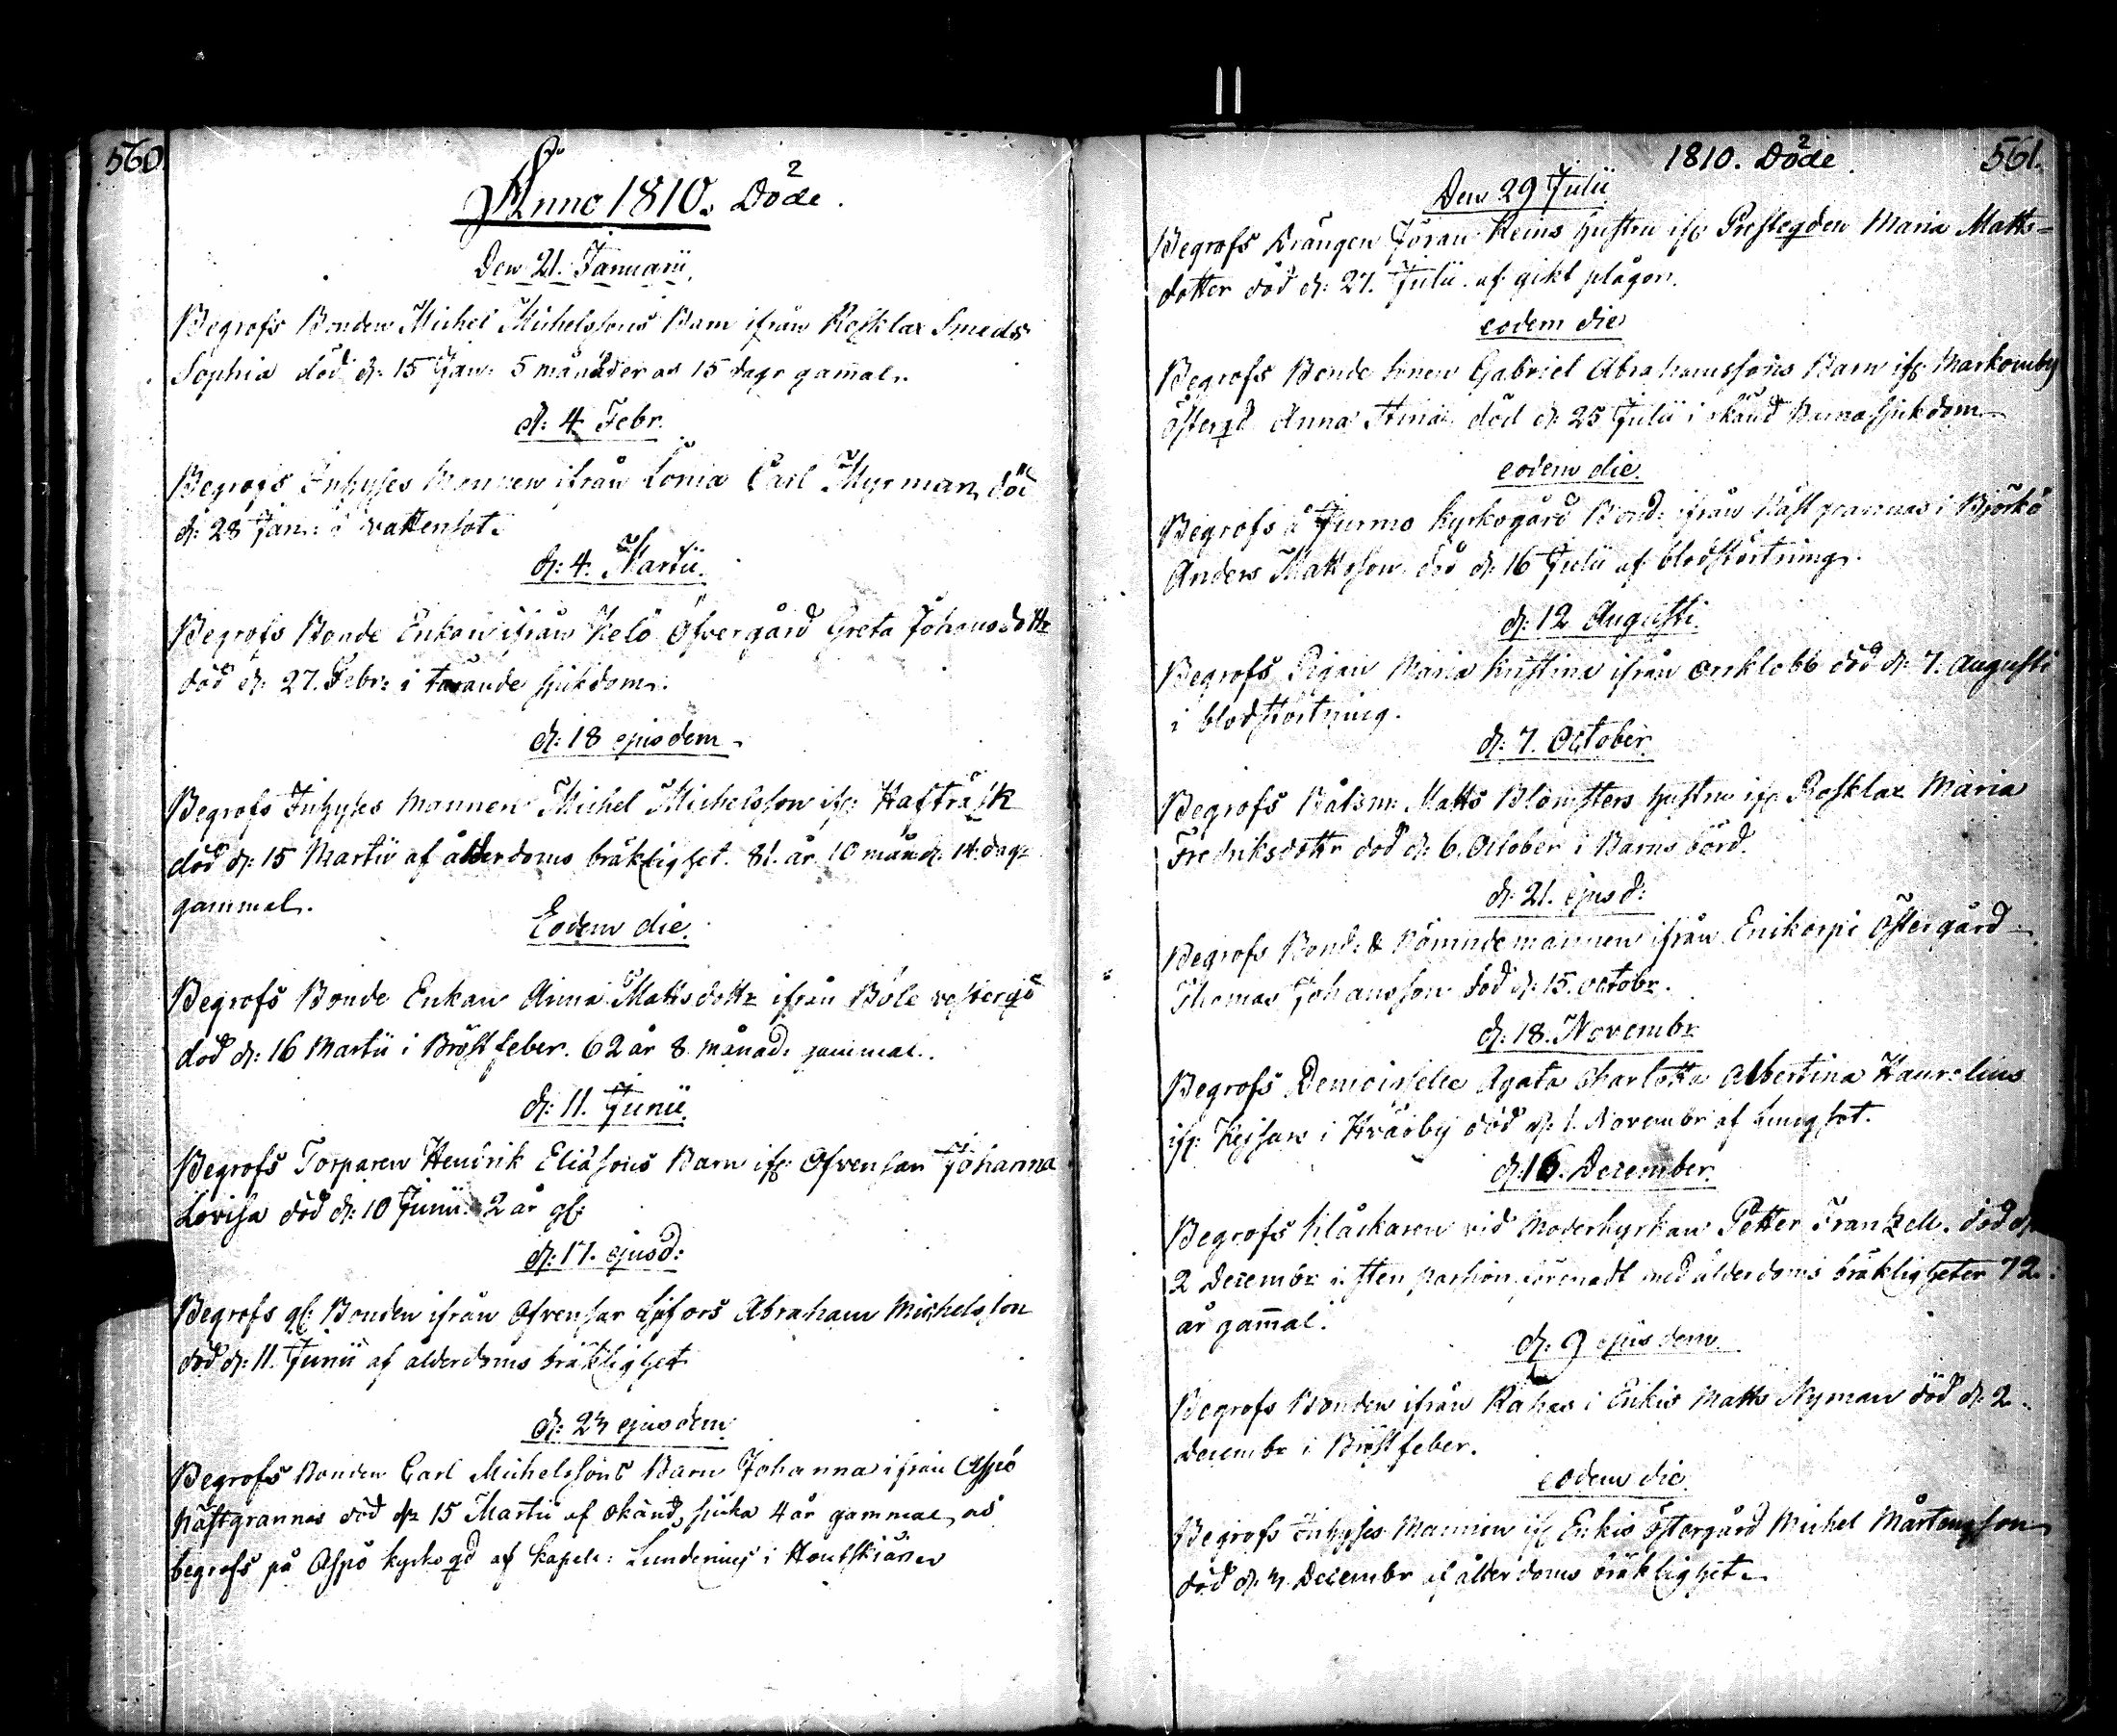 560
Anno 1810. Döde.
Den 21. Januarii
Begrofs Bonden Michel Michelssons Barn ifrån Rosklax Smeds
Sophia död d: 15 Jan: 5 månader o 15 dagr gamal.
d: 4 Febr.
Begrofs Inhyses Mannen ifrån Lonia Carl Myrman död
d: 28 Jan: i vattensot.
d: 4. Martii.
Begrofs Bonde Enkan ifrån Kelö Öfvergård Greta Johansdottr
död d: 27. Febr: i tärande sjukdom.
d: 18 ejusdem
Begrofs Inhyses Mannen Michel Michelsson ifr: Hafträsk
död d: 15 Martii af ålderdoms bräklighet. 81. år 10 mån: 14 dag:
gammal.
Eodem die.
Begrofs Bonde Enkan Anna Mattsdottr ifrån Böle vestergd
död d: 16 Martii i Bröstfeber. 62 år 8 månad: gammal.
d: 11. Junii.
Begrofs Torparen Hendrik Eliäsons Barn ifr: Ofvensar Johanna
Lovisa död d: 10 Junii. 2 år gl:
d: 17. ejusd:
Begrofs gl: Bonden ifrån Ofvensar Abraham Michelsson
död d: 11. Junii af alderdoms bräklighet
d: 23 ejusdem
Begrofs Bonden Carl Michelssons Barn Johanna ifrån Aspö
Nästgrannas död d: 15 Martii af okänd sjuka 4 år gammal, as
begrofs på Aspö kyrkogd af kapell: Lundenius i Houtskiären
1810. Döde. 561.
Den 29 Julii
Begrofs Drängen Jöran Keins hustru ifr Prestegden Maria Matts-
dotter död d: 27. Julii af gikt plågor.
eodem die
Begrofs Bonde Sonen Gabriel Abrahamssons Barn ifr Markomby
östergd Anna Stina, död d: 25 Julii i okänd Barnasjukdom
eodem die.
Begrofs å Jurmo kyrkogård Bond: ifrån Nästgrannas i Björkö
Anders Mattsson död d: 16 Julii af blodstörtning.
d: 12 Augusti.
Begrofs Pigan Maria Kristina ifrån Orrklobb död d: 7. Augusti
i blodstörtning.
d: 7. October.
Begrofs Båtsm: Matts Blomsters hustru ifr: Rosklax Maria
Fredriksdottr död d: 6. October i Barns börd.
d: 21. ejusd:
Begrofs Bond: & Nämndemannen ifrån Enikorpi Östergård
Thomas Johansson död d: 15. octobr.
d: 18. Novembr
Begrofs Demoiselle Agata Charlotta Albertina Haurelius
ifr: Kejsan i Kvarby död d: 1. Novembr af Lungsot.
d: 16. December.
Begrofs Klåckaren vid Moderkyrkan Petter Franzell. död d:
2 Decembr i sten passion förenadt med ålderdoms bräkligheter 72.
år gamal.
d: 9 ejusdem.
Begrofs Bonden ifrån Rahas i Enkis Matts Nyman död d: 2.
decembr i Bröstfeber.
eodem die.
Begrofs Inhyses Mannen ifr Enkis östergård Michel Mårtensson
död d: 3. Decembr af ålderdoms bräklighet.